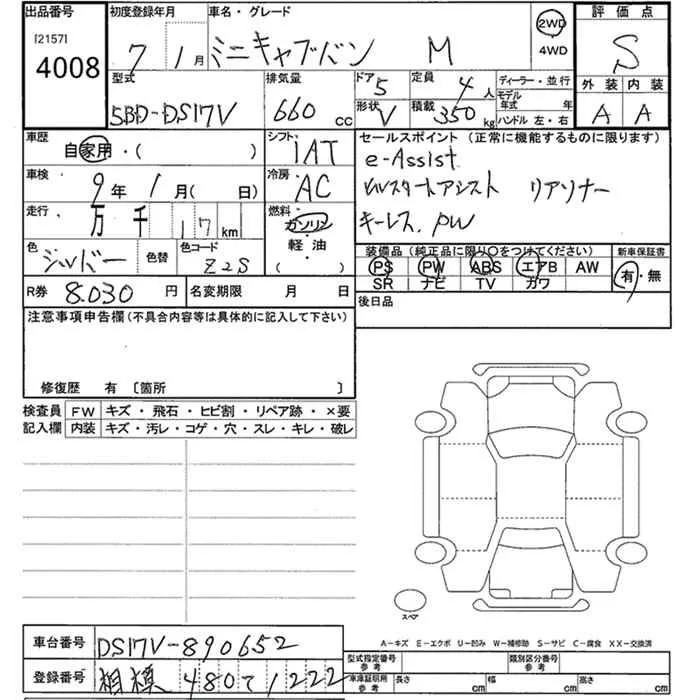 出品番号 初度登録年月 車名・グレード 評価点
[2157] 4008 7年 1月 ミニキャブバン M 2WD 4WD S
型式 排気量 ドア 定員 ディーラー・並行 外装 内装
5BD-DS17V 660cc 5 4人 モデル年式 年 A A
形状 V 積載 350kg ハンドル 左・右
車歴 自家用・( ) シフト IAT セールスポイント (正常に機能するものに限ります)
車検 9年 1月( 日) 冷房 AC e-Assist
ヒルスタートアシスト リアソナー
走行 万 千 17km 燃料 ガソリン 軽油 ( ) キーレス. PW
色 シルバー 色替 色コード Z2S 装備品 (純正品に限り○をつけてください) 新車保証書
PS PW ABS エアB AW 有・無
SR ナビ TV カワ
R券 8.030円 名変期限 月 日 後日品
注意事項申告欄(不具合内容等は具体的に記入して下さい)
修復歴 有 〔箇所 〕
検査員 FW キズ・飛石・ヒビ割・リペア跡・×要
記入欄 内装 キズ・汚レ・コゲ・穴・スレ・キレ・破レ
スペア
A-キズ E-エクボ U-凹み W-補修跡 S-サビ C-腐食 XX-交換済
車台番号 DS17V-890652
型式指定番号 参考 類別区分番号 参考
登録番号 相模 480 て 1222
車庫証明用 参考 長さ cm 幅 cm 高さ cm